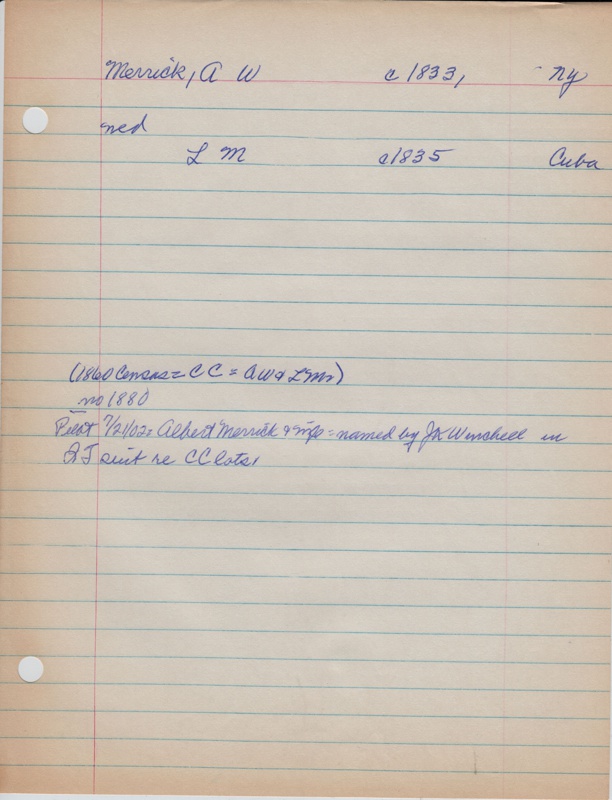 Merrick, A W c 1833, NY
med
L M c1835 Cuba
(1860 Census = CC = AW & LM)
no 1880
7/21/02 = Albert Merrick & = named by JK Winchell in
QT suit re CC lots,